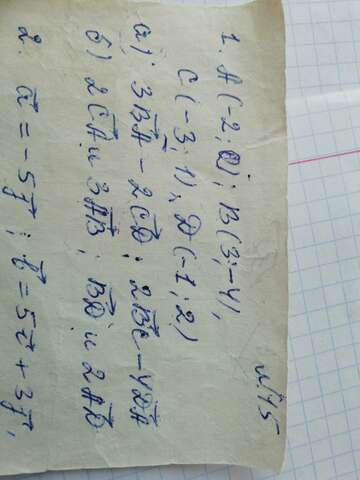 №15
1. A(-2; 0); B(3; -4),
C(-3; 1), D(-1; 2)
а) 3BA - 2CD; 2BC - 4DA
б) 2CA и 3AB; BD и 2AD
2. a = -5j; b = 5i + 3j,